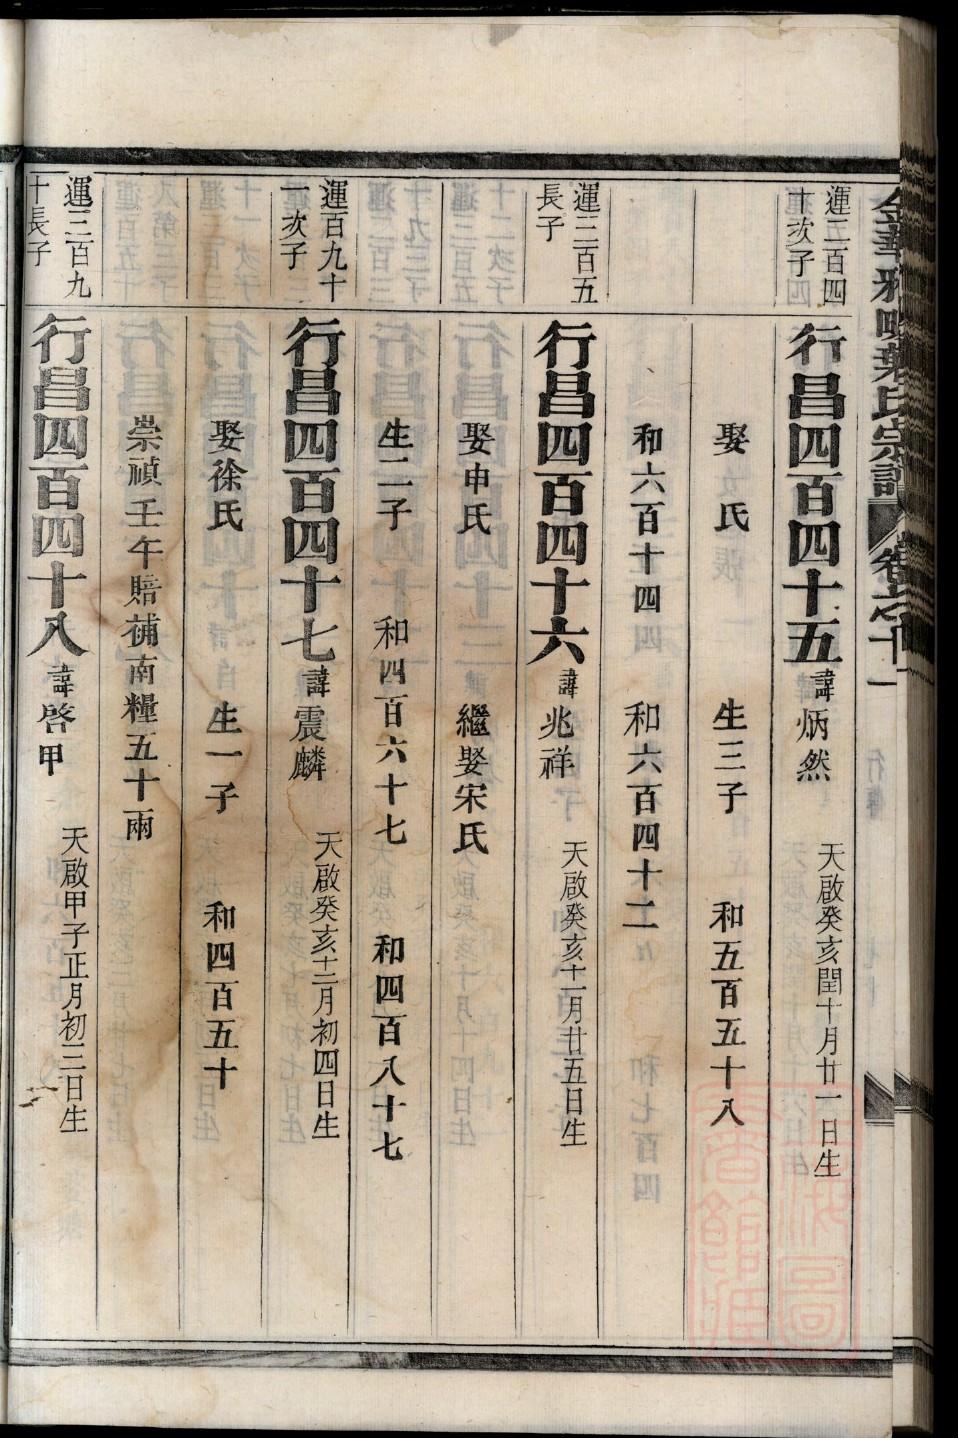 運五百四十次子
行昌四百四十五 諱炳然 天啟癸亥閏十月廿一日生
娶 氏 生三子 和五百五十八
和六百十四 和六百四十二
運三百五長子
行昌四百四十六 諱兆祥 天啟癸亥十一月廿五日生
娶申氏 繼娶宋氏
生二子 和四百六十七 和四百八十七
運百九十一次子
行昌四百四十七 諱震麟 天啟癸亥十二月初四日生
娶徐氏 生一子 和四百五十
崇禎壬午賠補南糧五十兩
運三百九十長子
行昌四百四十八 諱啓甲 天啟甲子正月初三日生